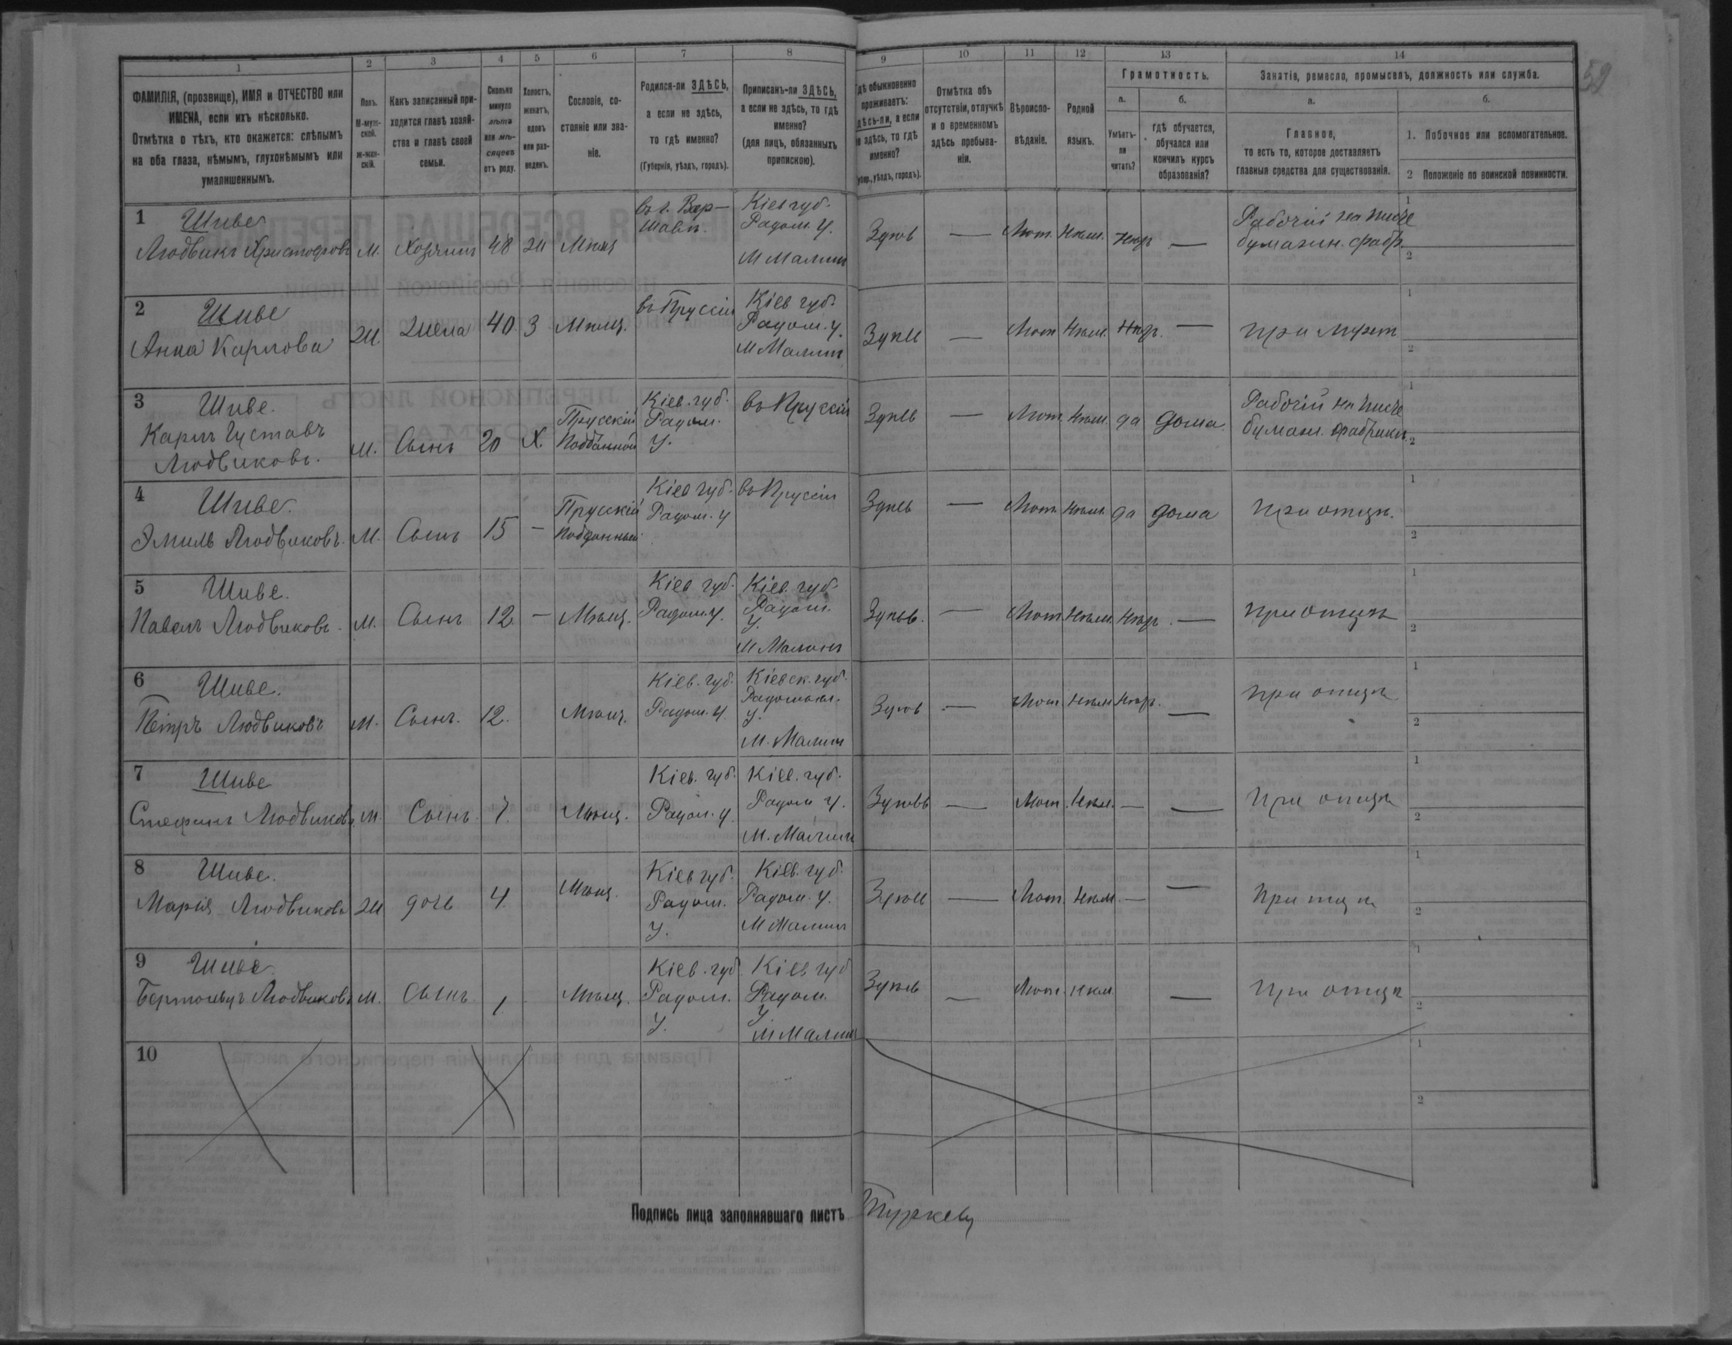 1 2 3 4 5 6 7 8 9 10 11 12 13 14
59
ФАМИЛІЯ, (прозвище), ИМЯ и ОТЧЕСТВО или ИМЕНА, если ихъ нѣсколько.
Отмѣтка о тѣхъ, кто окажется: слѣпымъ на оба глаза, нѣмымъ, глухонѣмымъ или умалишеннымъ.
Полъ.
М-мужской.
ж-женскій.
Какъ записанный приходится главѣ хозяйства и главѣ своей семьи.
Сколько минуло лѣтъ или мѣсяцевъ отъ роду.
Холостъ, женатъ, вдовъ или разведенъ.
Сословіе, состояніе или званіе.
Родился-ли ЗДѢСЬ, а если не здѣсь, то гдѣ именно?
(Губернія, уѣздъ, городъ).
Приписанъ-ли ЗДѢСЬ, а если не здѣсь, то гдѣ именно?
(для лицъ, обязанныхъ припискою).
Гдѣ обыкновенно проживаетъ: здѣсь-ли, а если не здѣсь, то гдѣ именно?
(Губер., уѣздъ, городъ).
Отмѣтка объ отсутствіи, отлучкѣ и о временномъ здѣсь пребываніи.
Вѣроисповѣданіе.
Родной языкъ.
Грамотность.
а.
Умѣетъ-ли читать?
б.
гдѣ обучается, обучался или кончилъ курсъ образованія?
Занятіе, ремесло, промыселъ, должность или служба.
а.
Главное,
то есть то, которое доставляетъ главныя средства для существованія.
б.
1. Побочное или вспомогательное.
2 Положеніе по воинской повинности.
1 Шиве
Людвикъ Христофоровъ М. Хозяинъ 48 Ж Мѣщ въ г. Варшавѣ Кіев губ. Радом. у. М Малинъ Здѣсь — Лют. Нѣм. Нѣтъ — Рабочій на писче бумажн. фабр. 1 2
2 Шиве
Анна Карлова Ж Жена 40 З Мѣщ. въ Пруссіи Кіев губ. Радом. у. М Малинъ Здѣсь — Лют Нѣм. Нѣтъ — при мужѣ 1 2
3 Шиве.
Карлъ Густавъ
Людвиковъ. М. Сынъ 20 Х. Прусскій Подданный Кіев. губ. Радом. у. въ Пруссіи Здѣсь — Лют Нѣм. да дома Рабочій на писче бумаж. фабрикѣ 1 2
4 Шиве.
Эмиль Людвиковъ. М. Сынъ 15 — Прусскій Подданный Кіев губ. Радом. у въ Пруссіи Здѣсь — Лют Нѣм да дома При отцѣ. 1 2
5 Шиве.
Павелъ Людвиковъ. М. Сынъ 12 — Мѣщ. Кіев губ. Радом. у. Кіев. губ. Радом. у. М Малинъ Здѣсь. — Лют Нѣм. Нѣтъ. — При отцѣ 1 2
6 Шиве.
Петръ Людвиковъ М. Сынъ. 12. Мѣщ. Кіев. губ. Радом. у Кіевск. губ. Радомысл. у. М. Малинъ Здѣсь — Лют Нѣм Нѣтъ. — При отцѣ 1 2
7 Шиве
Стефанъ Людвиковъ М. Сынъ 7. Мѣщ. Кіев. губ. Радом. у Кіев. губ. Радом у. М. Малинъ Здѣсь — Лют. Нѣм. — — При отцѣ 1 2
8 Шиве.
Марія Людвикова Ж дочь 4. Мѣщ. Кіев губ. Радом. у. Кіев. губ. Радом. у. М Малинъ Здѣсь — Лют. Нѣм. — — При отцѣ 1 2
9 Шиве.
Людвиковъ М. Сынъ 1 Мѣщ. Кіев. губ Радом. у. Кіев губ Радом. у М Малинъ Здѣсь — Лют. Нѣм — При отцѣ 1 2
10 1 2
Подпись лица заполнявшаго листъ